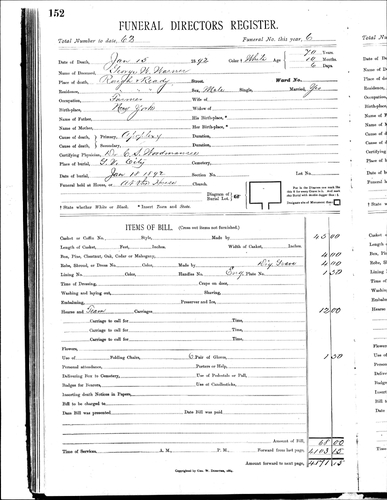 152
FUNERAL DIRECTORS REGISTER.
Total Number to date, 62 Funeral No. this year, 6
Date of Death, Jan 15 1892 Color† White Age 70 Years 10 Months 6 Days
Name of Deceased, George W. Warner
Place of Death, Rough & Ready Street. Ward No.
Residence, " " " Sex, Male Single, Married, Yes
Occupation, Farmer Wife of
Birthplace, New York Widow of
Name of Father, His Birth-place, *
Name of Mother, Her Birth-place, *
Cause of death, Primary, Duration,
Cause of death, Secondary, Duration,
Certifying Physician, Dr.
Place of burial, City Cemetery,
Date of burial, Jan 18 1892 Section No. Lot No.
Funeral held at House, or Church. Diagram of Burial Lot.
† State whether White or Black. * Insert Town and State.
ITEMS OF BILL. (Cross out items not furnished.)
Casket or Coffin No. Style, Made by 45 00
Length of Casket, Feet, Inches. Width of Casket, Inches.
Box, Pine, Chestnut, Oak, Cedar or Mahogany, 4 00
Robe, Shroud, or Dress No. Color, Made by 4 00
Lining No. Color, Handles No. Eng. Plate No. 1 50
Time of Dressing, Crape on door,
Washing and laying out, Shaving,
Embalming, Preserver and Ice,
Hearse and Team Carriages, 12 00
Carriage to call for Time,
Carriage to call for Time,
Carriage to call for Time,
Flowers,
Use of Folding Chairs, 6 Pair of Gloves, 1 50
Personal attendance, Porters or Help,
Delivering Box to Cemetery, Use of Pedestals or Pall,
Badges for Bearers, Use of Candlesticks,
Inserting death Notices in Papers,
Bill to be charged to
Date Bill was presented Date Bill was paid
Amount of Bill, 68 00
Time of Services, A. M., P. M., Forward from last page, 4103 15
Amount forward to next page, 4171 15